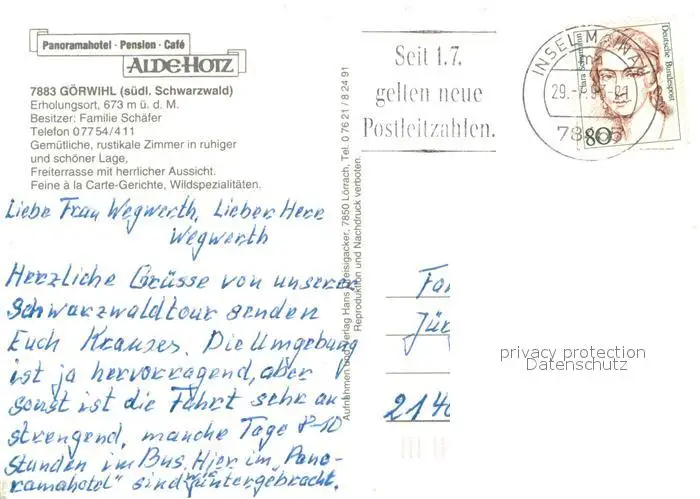 Panoramahotel · Pension · Café
ALDE HOTZ
7883 GÖRWIHL (südl. Schwarzwald)
Erholungsort, 673 m ü. d. M.
Besitzer: Familie Schäfer
Telefon 07754/411
Gemütliche, rustikale Zimmer in ruhiger
und schöner Lage,
Freiterrasse mit herrlicher Aussicht.
Feine à la Carte-Gerichte, Wildspezialitäten.
Liebe Frau Wegwerth, Lieber Herr
Wegwerth
Herzliche Grüsse von unserer
Schwarzwaldtour senden
Euch Krauses. Die Umgebung
ist ja hervorragend, aber
sonst ist die Fahrt sehr an
strengend, manche Tage 8-10
Stunden im Bus. Hier im „Pano-
ramahotel" sind wir untergebracht.
Aufnahmen und Verlag Hans Dreisigacker, 7850 Lörrach, Tel. 0 76 21 / 8 24 91
Reproduktion und Nachdruck verboten.
Seit 1.7.
gelten neue
Postleitzahlen.
INSEL MAINAU
29.-7.93-21
78465
Clara Schumann
Deutsche Bundespost
80
Fa
Jür
214
privacy protection
Datenschutz